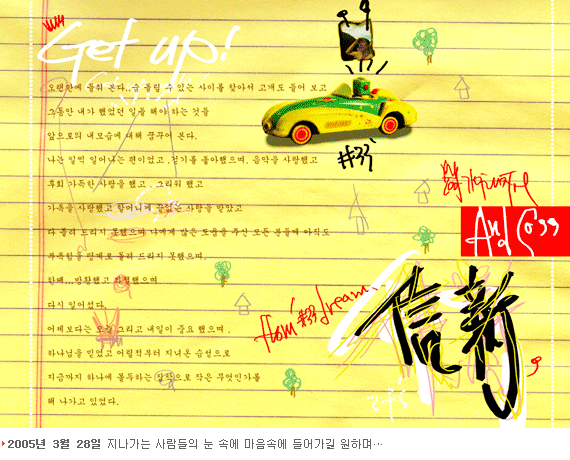 Get up!
오랜만에 들려 본다..숨 돌릴 수 있는 사이를 찾아서 고개도 들어 보고
그동안 내가 했었던 일을 해야 하는 것을
앞으로의 내모습에 대해 꿈꾸어 본다.
나는 일찍 일어나는 편이었고, 걷기를 좋아했으며, 음악을 사랑했고
후회 가득한 사랑을 했고 , 그리워 했고
가족을 사랑했고 할머니께 끝없는 사랑을 받았고
다 돌려 드리지 못했으며 나에게 많은 도움을 주신 모든 분들께 아직도
부족함을 핑계로 돌려 드리지 못했으며,
한때... 방황했고 좌절했으며
다시 일어섰다.
어제보다는 오늘 그리고 내일이 중요 했으며 ,
하나님을 믿었고 어릴적부터 지녀온 습성으로
지금까지 하나에 몰두하는 장점으로 작은 무엇인가를
해 나가고 있었다.
#33
And Co 39
from #33 dream.
信新
2005년 3월 28일 지나가는 사람들의 눈 속에 마음속에 들어가길 원하며…